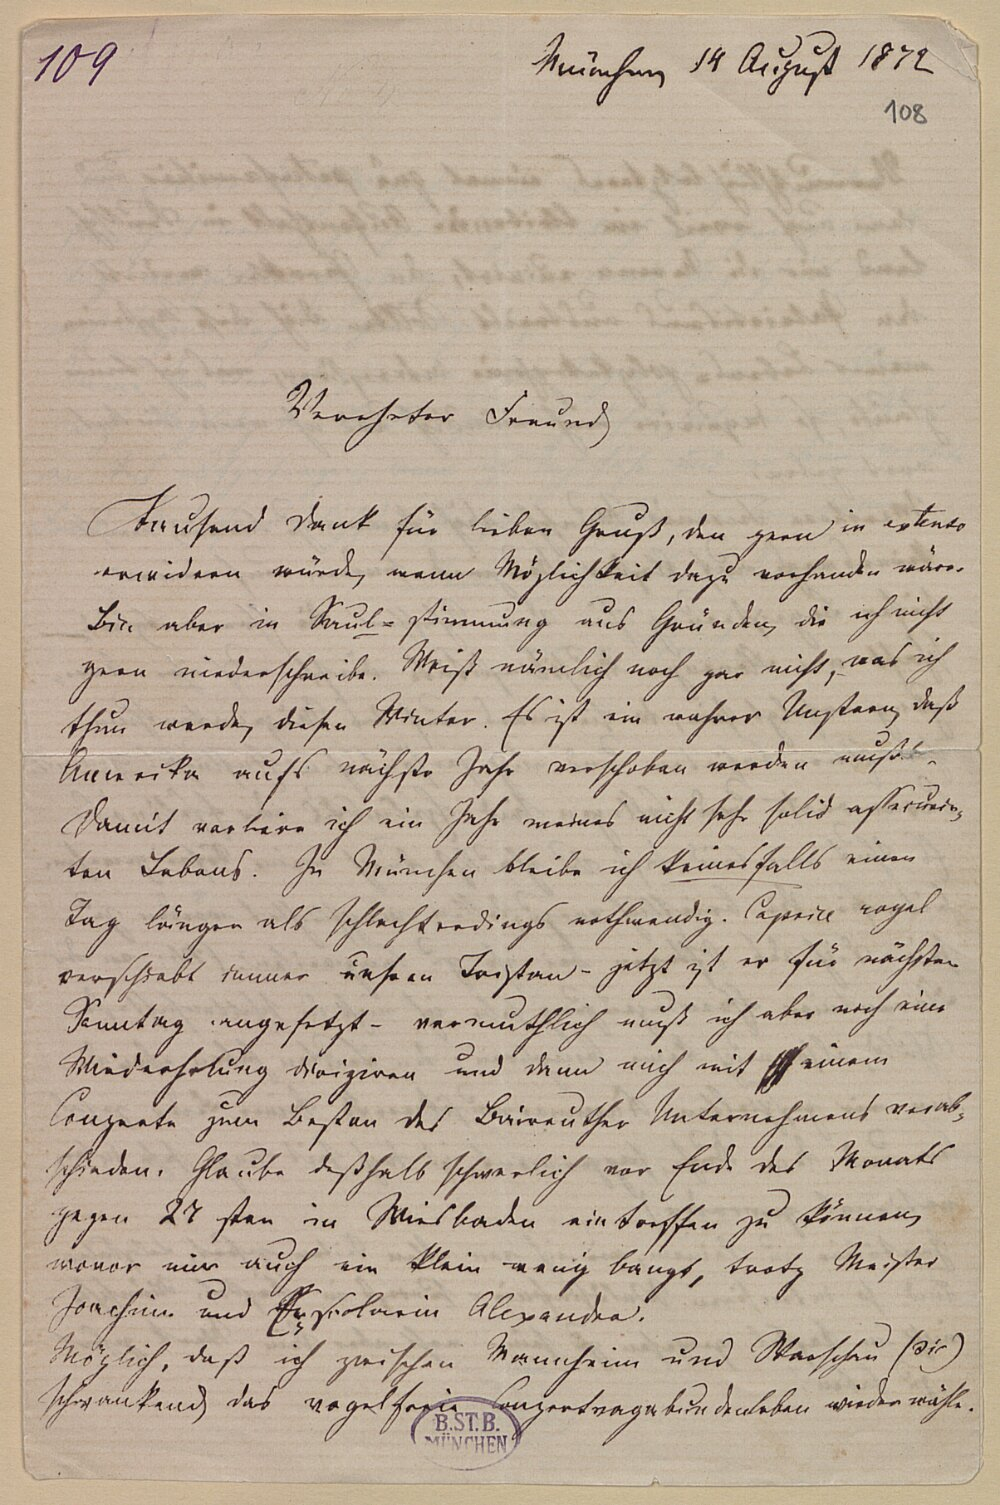 109
München 14 August 1872
108
Verehrter Freund,
Tausend Dank für lieben Gruß, den gern in extenso
erwidern würde, wenn Möglichkeit dazu vorhanden wäre.
Bin aber in Saul-stimmung aus Gründen, die ich nicht
gern niederschreibe. Weiß nämlich noch gar nicht, was ich
thun werde, diesen Winter. Es ist ein wahrer Unstern, daß
Amerika aufs nächste Jahr verschoben werden muß.
Damit verliere ich ein Jahr meines nicht sehr solid assecurir-
ten Lebens. In München bleibe ich keinesfalls einen
Tag länger als schlechterdings nothwendig. Caprice royal
verschiebt immer unsren Tristan – jetzt ist er für nächsten
Sonntag angesetzt – vermuthlich muß ich aber noch eine
Wiederholung dirigiren und dann mich mit einem
Conzerte zum Besten des Baireuther Unternehmens verab-
schieden. Glaube deßhalb schwerlich vor Ende des Monats
gegen 27 sten in Wiesbaden eintreffen zu können,
wovor mir auch ein klein wenig bangt, trotz Meister
Joachim und Exscolarin Alexandra.
Möglich, daß ich zwischen Mannheim und Warschau (sic)
schwankend das vogelfreie Conzertvagabundenleben wieder wähle.
B.ST.B.
MÜNCHEN